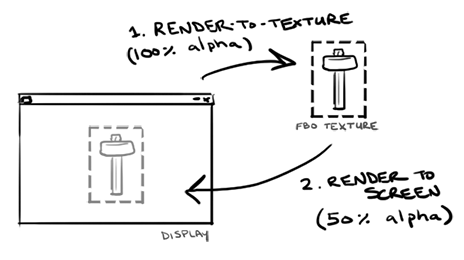 1. RENDER-TO-TEXTURE
(100% alpha)
FBO TEXTURE
2. RENDER TO
SCREEN
(50% alpha)
DISPLAY